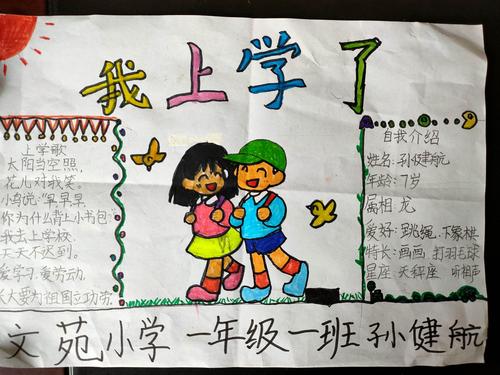 我上学了
上学歌
太阳当空照,
花儿对我笑。
小鸟说:早早早
你为什么背上小书包
我去上学校
天天不迟到。
爱学习 爱劳动,
长大要为祖国立功劳
自我介绍
姓名:孙健航
年龄:7岁
属相:龙
爱好:跳绳.下象棋
特长:画画 打羽毛球
星座:天秤座 听相声
文苑小学 一年级一班 孙健航